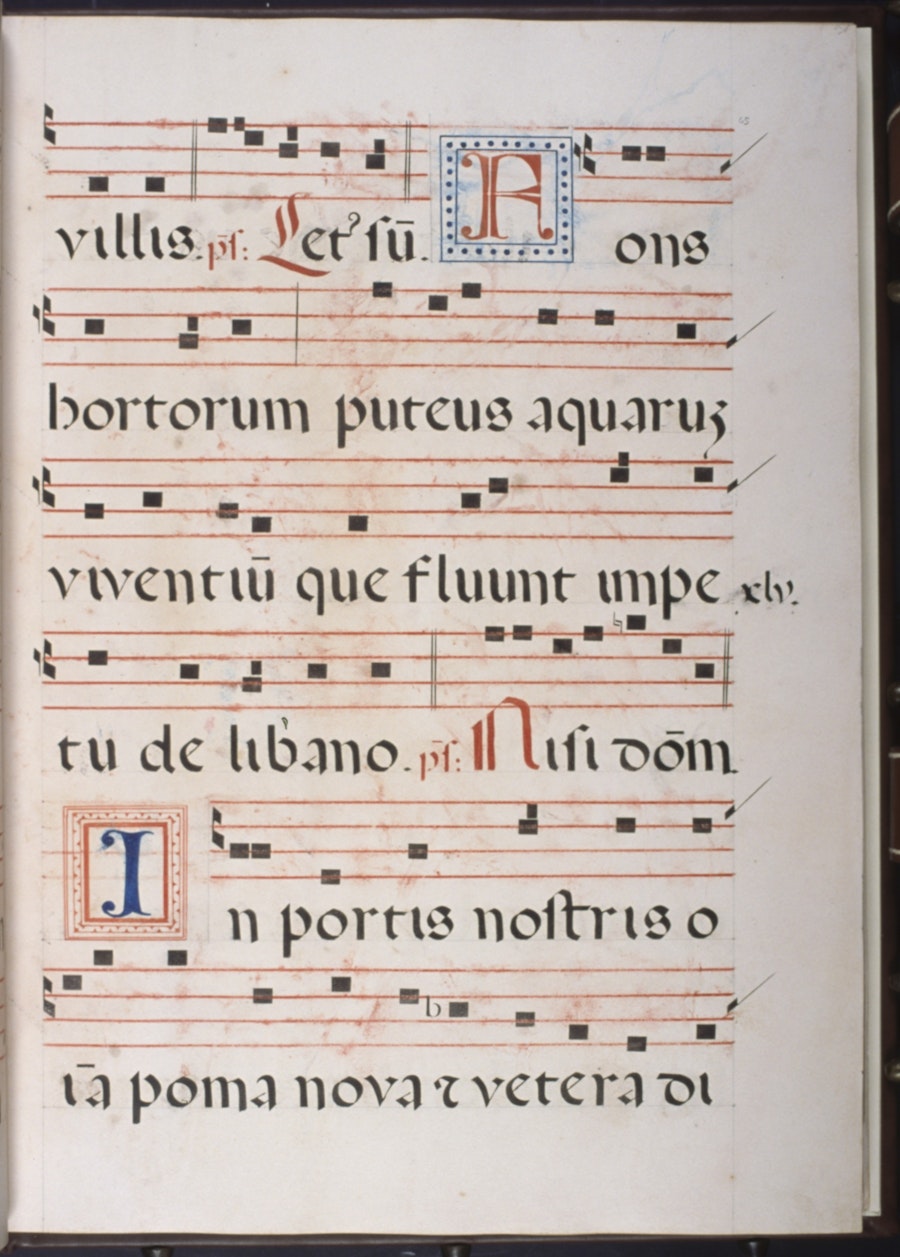 villis. ps̄: Letꝰ sū. Fons
hortorum puteus aquaruꝫ
viventiū que fluunt impe xlv.
tu de lib̓ano. ps̄: Nisi dōm
In portis nostris o
īa poma nova ⁊ vetera di